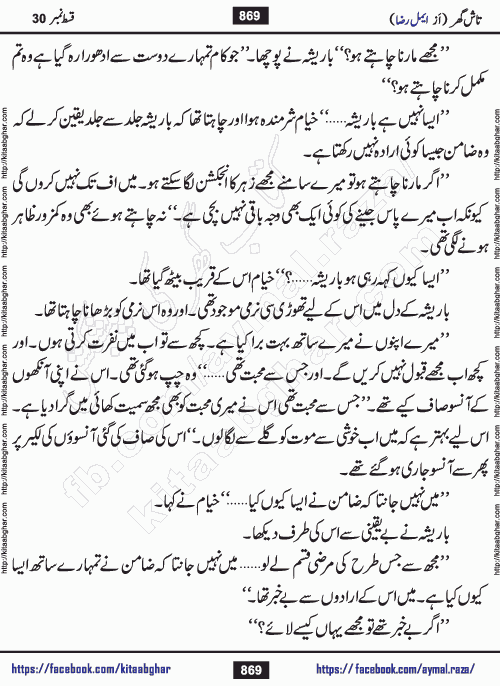 تاش گھر (از ایمل رضا)
869
قسط نمبر 30
’’مجھے مارنا چاہتے ہو؟‘‘ باریشہ نے پوچھا۔ ’’جو کام تمہارے دوست سے ادھورا رہ گیا ہے وہ تم
مکمل کرنا چاہتے ہو؟‘‘
’’ایسا نہیں ہے باریشہ......‘‘ خیام شرمندہ ہوا اور چاہتا تھا کہ باریشہ جلد سے جلد یقین کر لے کہ
وہ ضامن جیسا کوئی ارادہ نہیں رکھتا ہے۔
’’اگر مارنا چاہتے ہو تو میرے سامنے مجھے زہر کا انجکشن لگا سکتے ہو۔ میں اف تک نہیں کروں گی
کیونکہ اب میرے پاس جینے کی کوئی ایک بھی وجہ باقی نہیں بچی ہے۔‘‘ نہ چاہتے ہوئے بھی وہ کمزور ظاہر
ہونے لگی تھی۔
’’ایسا کیوں کہہ رہی ہو باریشہ......؟‘‘ خیام اس کے قریب بیٹھ گیا تھا۔
باریشہ کے دل میں اس کے لیے تھوڑی سی نرمی موجود تھی۔ اور وہ اس نرمی کو بڑھانا چاہتا تھا۔
’’میرے اپنوں نے میرے ساتھ بہت برا کیا ہے۔ کچھ سے تو اب میں نفرت کرتی ہوں۔ اور
کچھ اب مجھے قبول نہیں کریں گے۔ اور جس سے محبت تھی......‘‘ وہ چپ ہو گئی تھی۔ اس نے اپنی آنکھوں
کے آنسو صاف کیے تھے۔ ’’جس سے محبت تھی اس نے میری محبت کو بھی مجھ سمیت کھائی میں گرا دیا ہے۔
اس لیے بہتر ہے کہ میں اب خوشی سے موت کو گلے سے لگا لوں۔‘‘ اس کی صاف کی گئی آنسوؤں کی لکیر پر
پھر سے آنسو جاری ہو گئے تھے۔
’’میں نہیں جانتا کہ ضامن نے ایسا کیوں کیا......‘‘ خیام نے کہا۔
باریشہ نے بے یقینی سے اس کی طرف دیکھا۔
’’مجھ سے جس طرح کی مرضی قسم لے لو...... میں نہیں جانتا کہ ضامن نے تمہارے ساتھ ایسا
کیوں کیا ہے۔ میں اس کے ارادوں سے بے خبر تھا۔‘‘
’’اگر بے خبر تھے تو مجھے یہاں کیسے لائے؟‘‘
https://facebook.com/kitaabghar
869
https://facebook.com/aymal.raza/
http://kitaabghar.com
http://kitaabghar.com
http://kitaabghar.com
http://kitaabghar.com
http://kitaabghar.com
http://kitaabghar.com
http://kitaabghar.com
http://kitaabghar.com